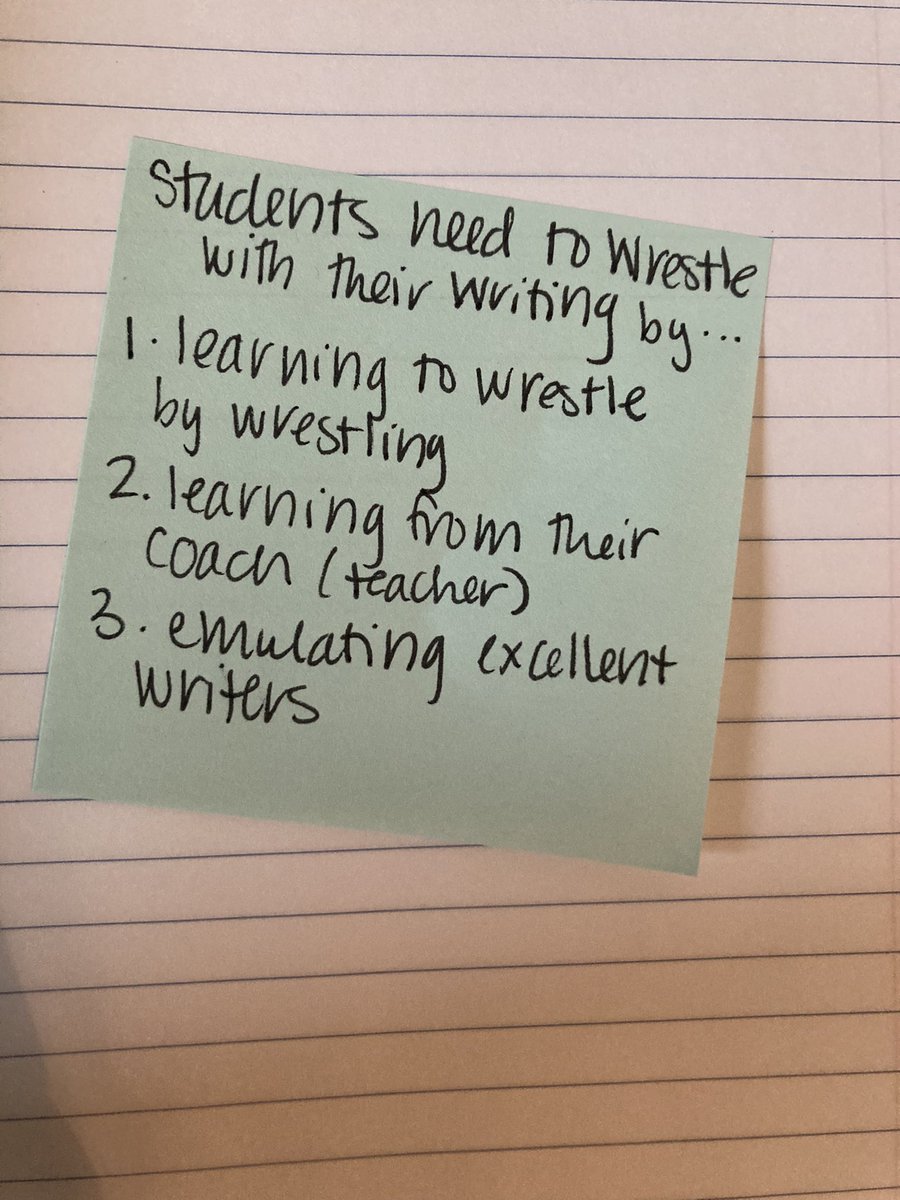 Students need to Wrestle
with their writing by...
1. learning to wrestle
by wrestling
2. learning from their
coach (teacher)
3. emulating excellent
writers